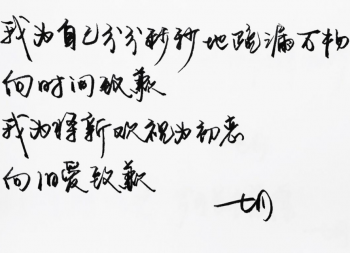 我为自己分分秒秒地疏漏万物
向时间致歉
我为将新欢视为初恋
向旧爱致歉
七月